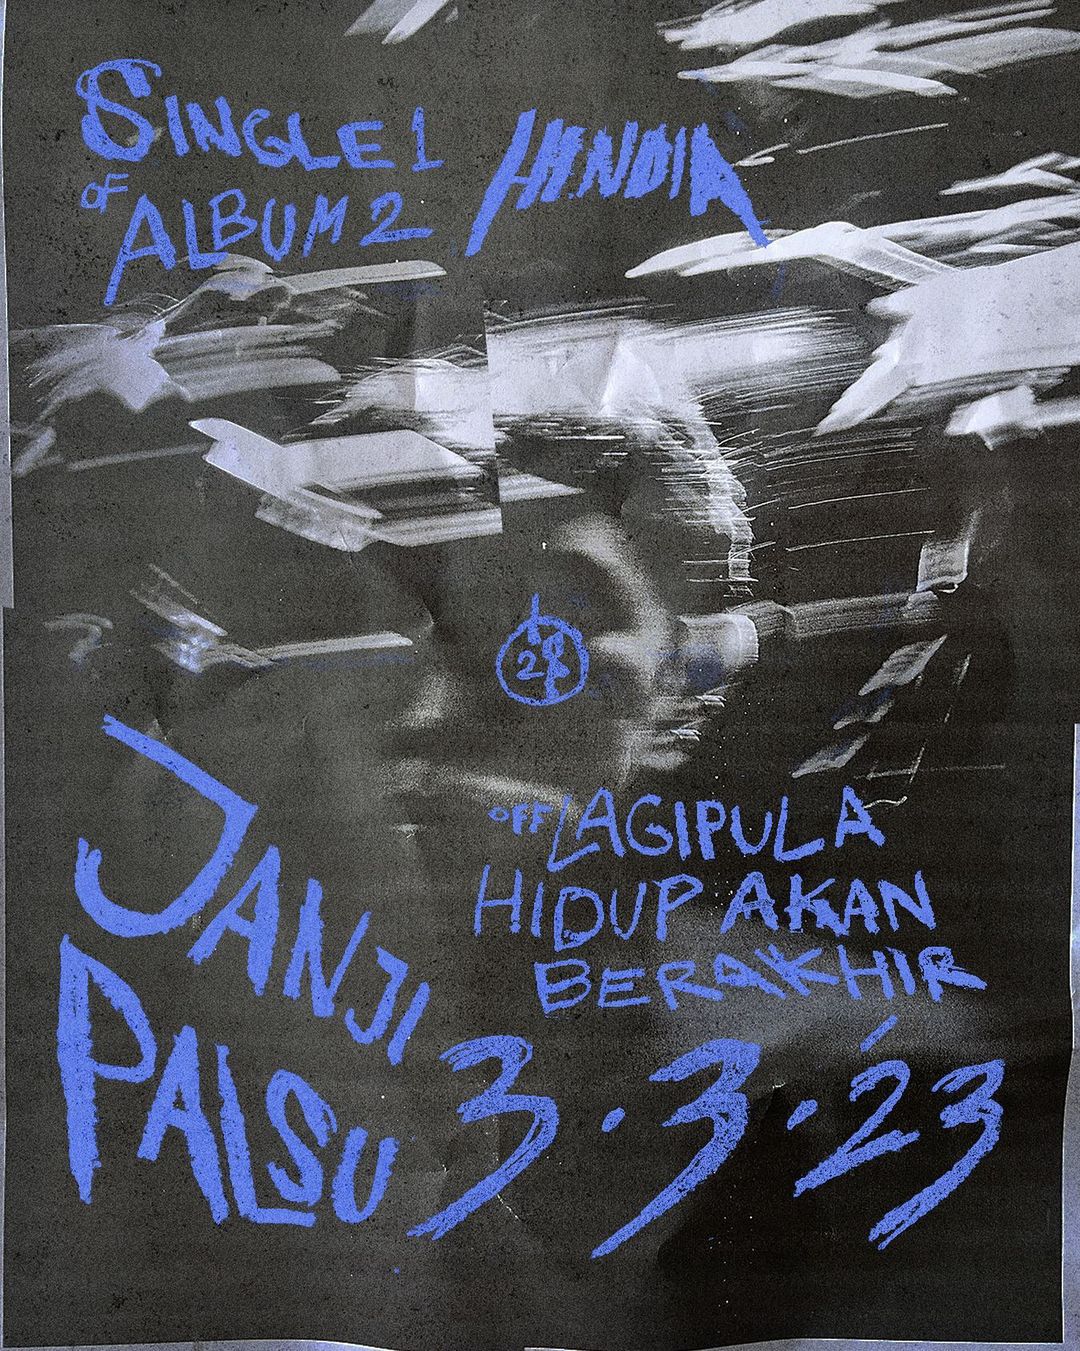 SINGLE 1
OF ALBUM 2
HINDIA
JANJI
PALSU
OFF LAGIPULA
HIDUP AKAN
BERAKHIR
3.3.23